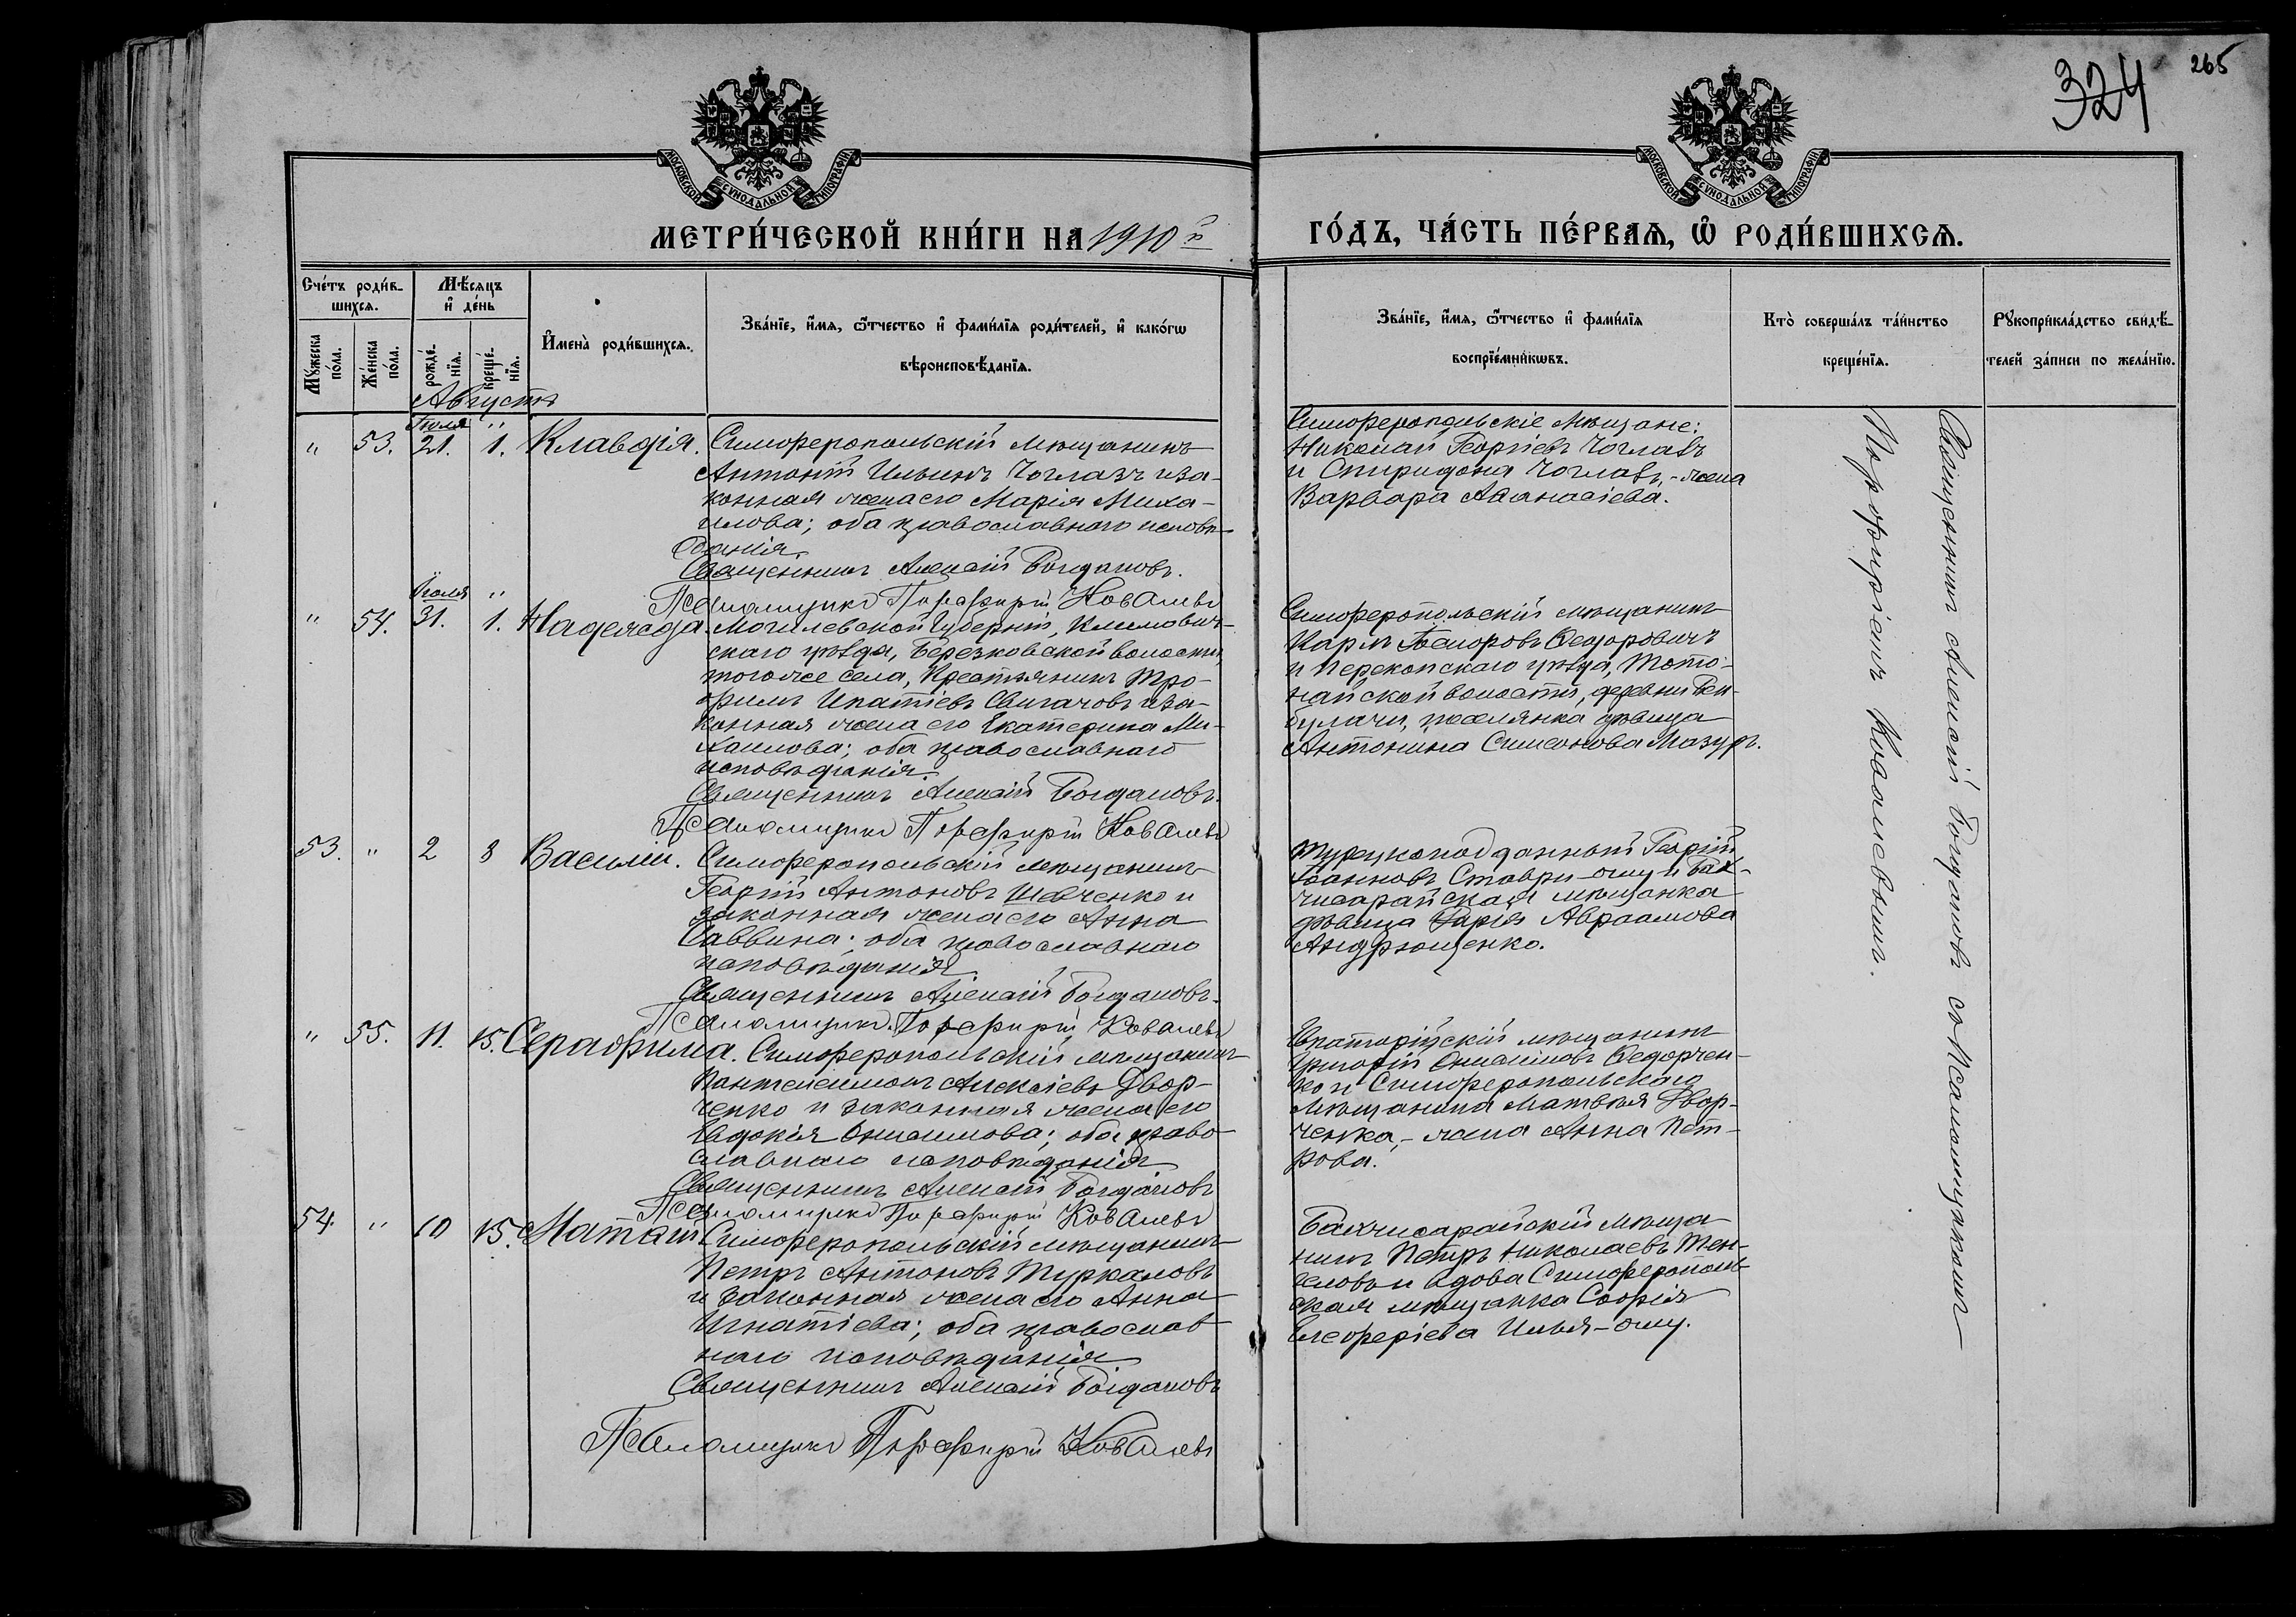 324 265
МОСКОВСКОЙ СѴНОДАЛЬНОЙ ТИПОГРАФІИ
МОСКОВСКОЙ СѴНОДАЛЬНОЙ ТИПОГРАФІИ
МЕТРИ́ЧЕСКОЙ КНИ́ГИ НА 1910 й
ГО́ДЪ, ЧА́СТЬ ПЕ́РВАѦ, Ѡ҆ РОДИ́ВШИХСѦ.
Сче́тъ роди́в-
шихсѧ.
Мѣ́сяцъ
и҆ де́нь
Мꙋ́жеска
по́ла.
Же́нска
по́ла.
рожде́-
нїѧ.
креще́-
нїѧ.
И҆мена̀ роди́вшихсѧ.
Зва́нїе, и҆́мѧ, ѻ҆́тчество и҆ фами́лїѧ роди́телей, и҆ како́гѡ
вѣроисповѣ́данїѧ.
Зва́нїе, и҆́мѧ, ѻ҆́тчество и҆ фами́лїѧ
воспрїе́мникѡвъ.
Кто̀ соверша́лъ та́инство
креще́нїѧ.
Рꙋкоприкла́дство свидѣ́-
телей за́писи по жела́нїю.
Августъ
Іюля "
" 53. 21. 1. Клавдія. Симферопольскій мѣщанинъ
Антоній Ильинъ Чоглазъ и за-
конная жена его Марія Миха-
илова; оба православнаго исповѣ-
данія.
Священникъ Алексій Богдановъ.
Псаломщикъ Порфирій Ковалевъ
Симферопольскіе мѣщане:
Николай Георгіевъ Чоглавъ
и Спиридона Чоглавъ, - жена
Варвара Аѳанасіева.
Іюля "
" 54. 31. 1. Надежда. Могилевской губерніи, Климович-
скаго уѣзда, Березковской волости,
того же села, крестьянинъ Тро-
фимъ Ипатіевъ Свигачовъ и за-
конная жена его Екатерина Ми-
хаилова; оба православнаго
исповѣданія.
Священникъ Алексій Богдановъ.
Псаломщикъ Порфирій Ковалевъ
Симферопольскій мѣщанинъ
Карлъ Ѳедоровичъ
и Перекопскаго уѣзда, Тото-
найской волости, деревни
булачи, поселянка дѣвица
Антонина Симеонова Мазуръ.
53. " 2 8 Василій. Симферопольскій мѣщанинъ
Георгій Антоновъ Шевченко и
законная жена его Анна
Саввина; оба православнаго
исповѣданія
Священникъ Алексій Богдановъ.
Псаломщикъ Порфирій Ковалевъ
Турецкоподданный Георгій
Іоанновъ Ставри-оглу и Бах-
чисарайская мѣщанка
дѣвица Марія Авраамова
Андрющенко.
" 55. 11. 15. Серафима. Симферопольскій мѣщанинъ
Пантелеимонъ Алексіевъ Двор-
ченко и законная жена его
Евдокія Онисимова; оба право-
славнаго исповѣданія
Священникъ Алексій Богдановъ
Псаломщикъ Порфирій Ковалевъ
Евпаторійскій мѣщанинъ
Григорій Онисимовъ Ѳедорчен-
ко и Симферопольскаго
мѣщанина Матвѣя Двор-
ченка, - жена Анна Пет-
рова.
54. " 10 15. Матѳій. Симферопольскій мѣщанинъ
Петръ Антоновъ Туркаловъ
и законная жена его Анна
Игнатіева; оба православ-
наго исповѣданія
Священникъ Алексій Богдановъ
Псаломщикъ Порфирій Ковалевъ
Бахчисарайскій мѣща-
нинъ Петръ Николаевъ Тен-
еловъ и вдова Симферополь-
ская мѣщанка Софія
Елеферіева Илья-оглу.
Священникъ Алексій Богдановъ съ Псаломщикомъ
Порфиріемъ Ковалевымъ.